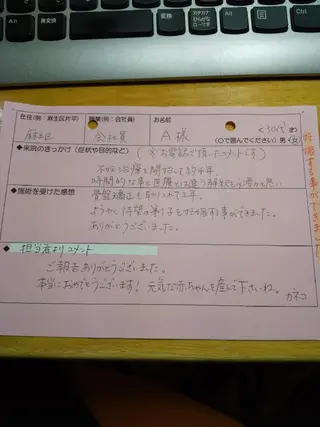 在住(例：麻生区片平)
麻生区
職業(例：会社員)
会社員
お名前
A 様
(○で囲んでください) 男・女
◆来院のきっかけ (症状や目的など)
(※お電話で頂いたコメントです)
不妊治療を開始して約4年。
時間的な事と医療とは違う解釈も必要かと思い
◆施術を受けた感想
骨盤矯正も
ようやく待望の第1子を妊娠する事ができました。
ありがとうございました。
◆ 担当者よりコメント
ご報告ありがとうございました。
本当におめでとうございます! 元気な赤ちゃんを産んで下さいね。 カネコ
変換
無変換
カタカナ
ひらがな
ローマ字
Alt